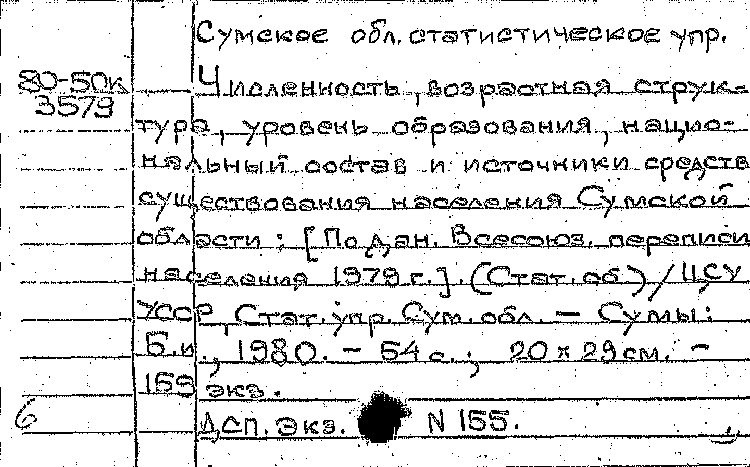 Сумское обл. статистическое упр.
80-50к Численность, возрастная струк-
3579
тура, уровень образования, нацио-
нальный состав и источники средств
существования населения Сумской
области : [По дан. Всесоюз. переписи
населения 1979 г.]. (Стат. сб) / ЦСУ
УССР, Стат. упр. Сум. обл. — Сумы :
Б.и., 1980. - 54 с. ; 20 х 29 см. -
159 экз.
6 ДСП. Экз. N 155.